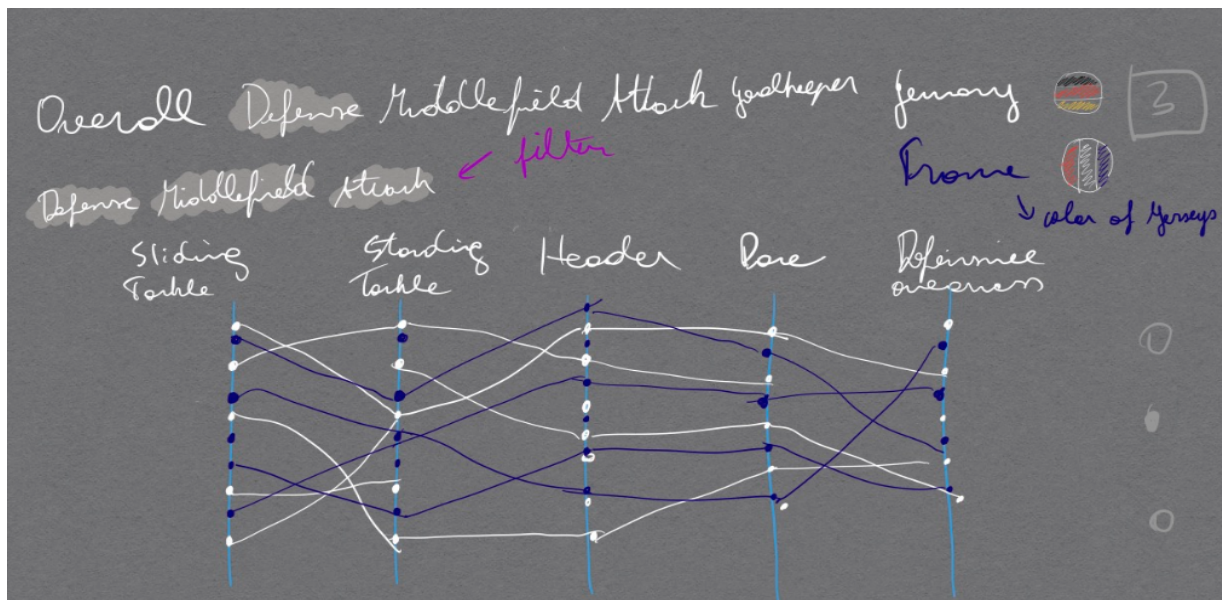 Overall Defense Middlefield Attack Goalkeeper Germany 3
Defense Middlefield Attack filter France
color of Jerseys
Sliding Tackle Standing Tackle Header Pace Defensive